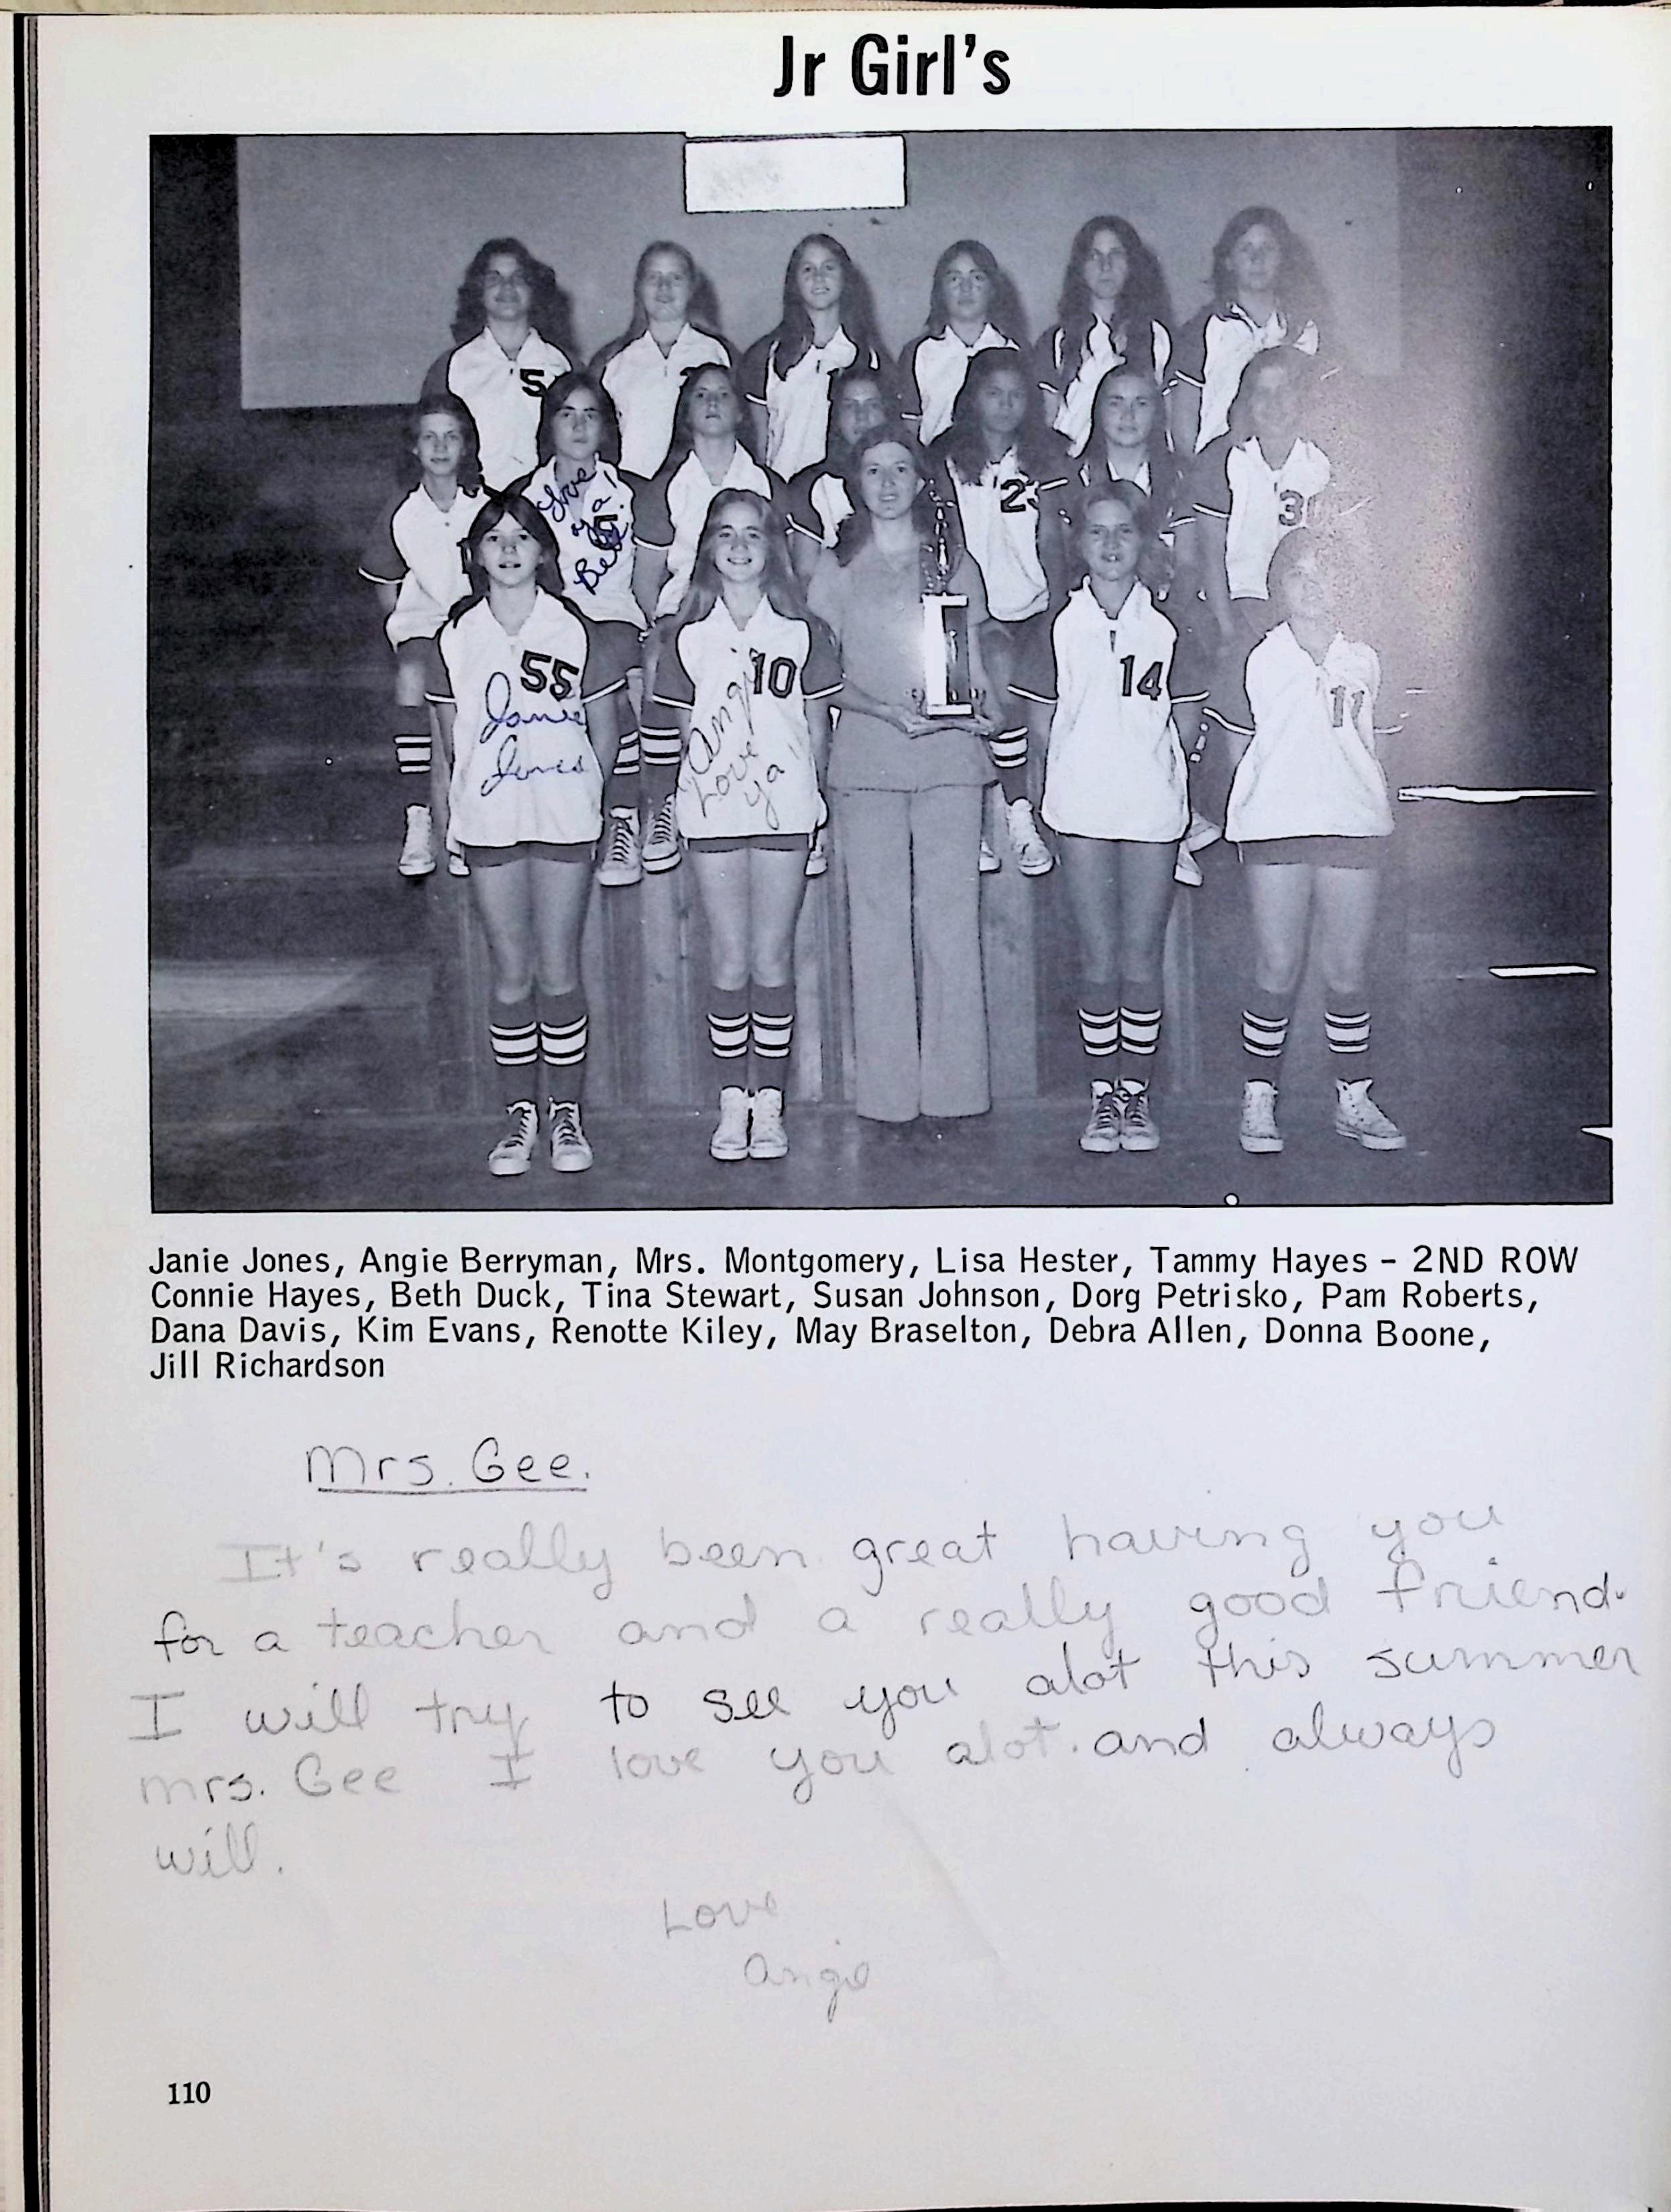 Jr Girl's
5
Love
ya!
Beth
2
3
55
10
14
11
Janie
Jones
Angie
Love
ya
Janie Jones, Angie Berryman, Mrs. Montgomery, Lisa Hester, Tammy Hayes - 2ND ROW
Connie Hayes, Beth Duck, Tina Stewart, Susan Johnson, Dorg Petrisko, Pam Roberts,
Dana Davis, Kim Evans, Renotte Kiley, May Braselton, Debra Allen, Donna Boone,
Jill Richardson
Mrs. Gee.
It's really been great having you
for a teacher and a really good friend.
I will try to see you alot this summer
mrs. Gee I love you alot. and always
will.
Love
Angie
110